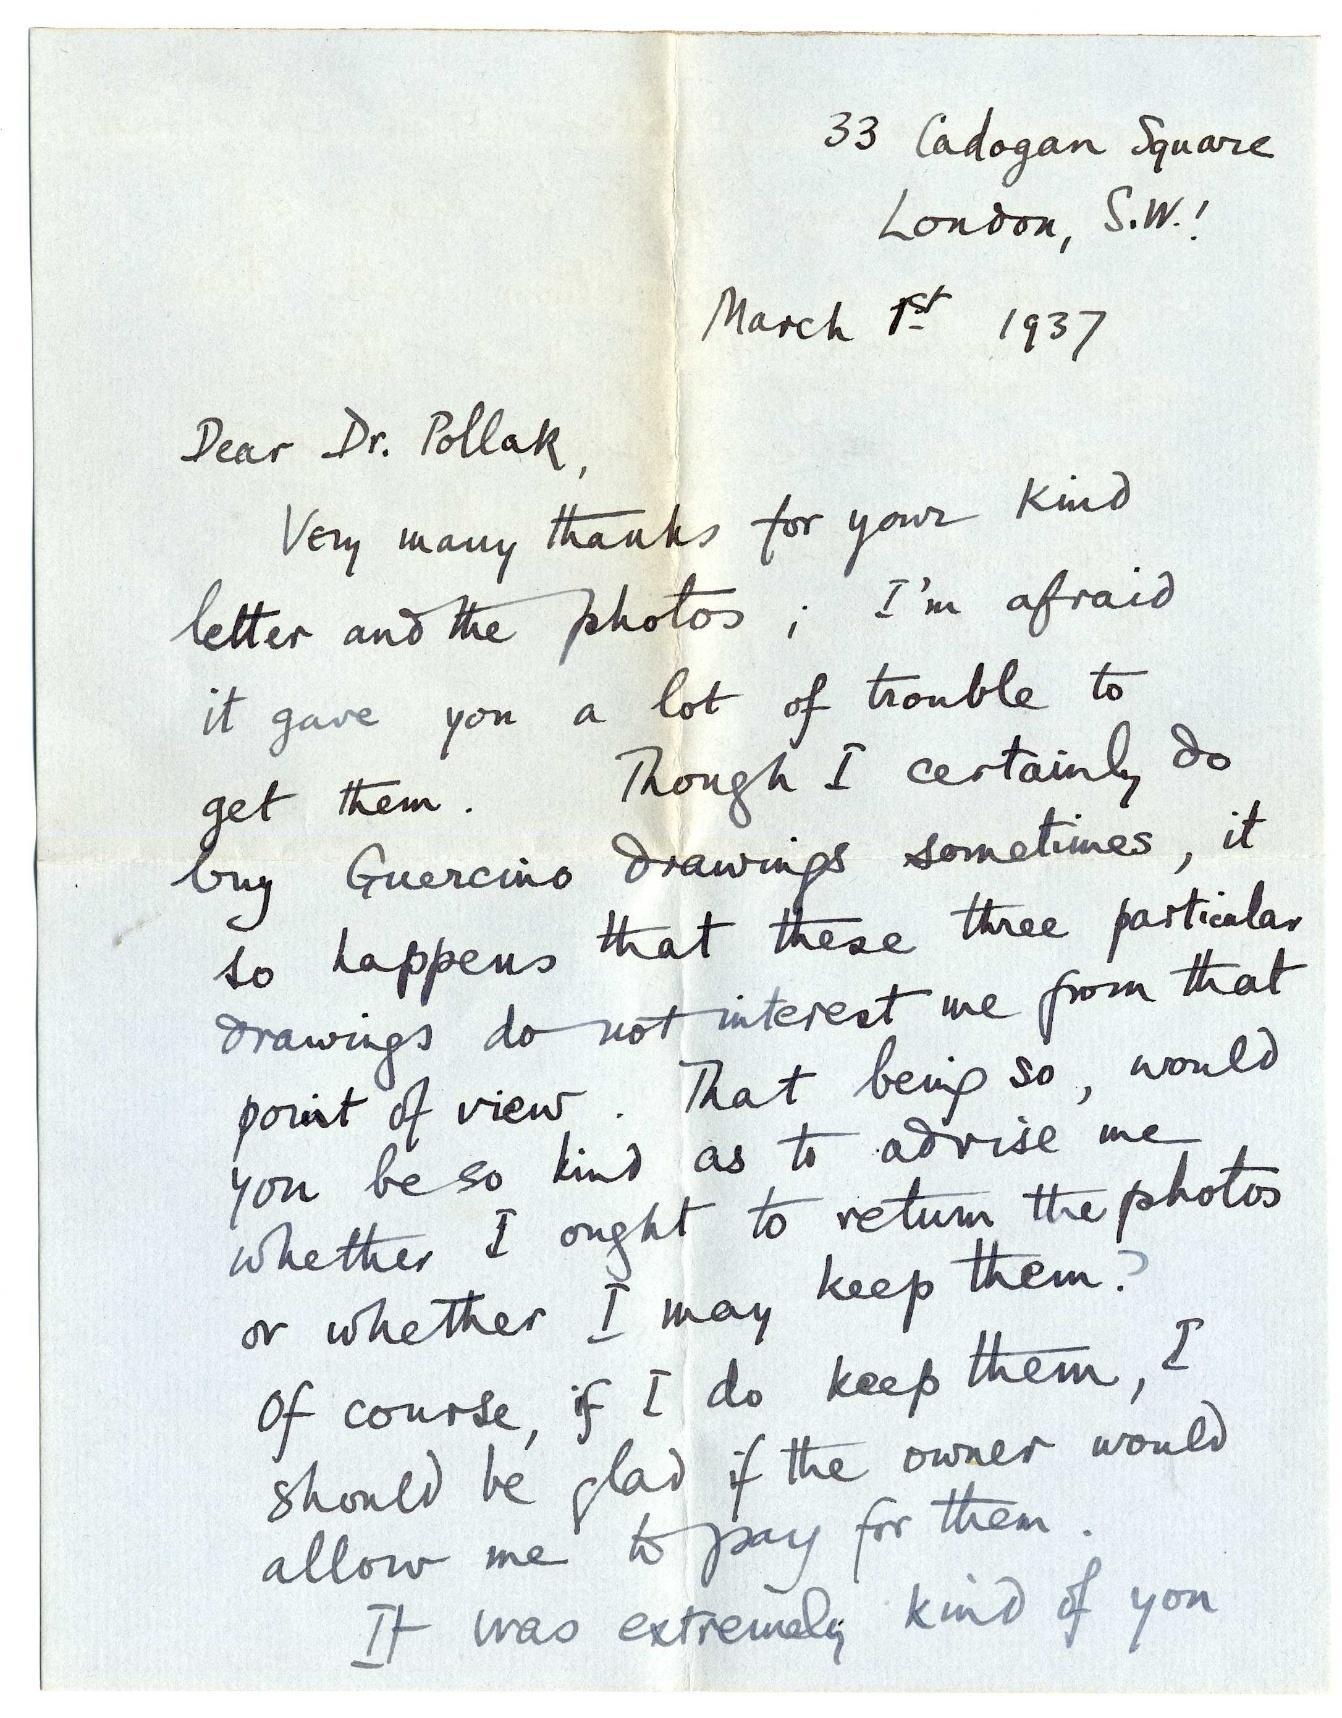 33 Cadogan Square
London, S.W.1
March 1st 1937
Dear Dr. Pollak,
Very many thanks for your kind
letter and the photos ; I'm afraid
it gave you a lot of trouble to
get them. Though I certainly do
buy Guercino drawings sometimes, it
so happens that these three particular
drawings do not interest me from that
point of view. That being so, would
you be so kind as to advise me
whether I ought to return the photos
or whether I may keep them?
Of course, if I do keep them, I
should be glad if the owner would
allow me to pay for them.
It was extremely kind of you